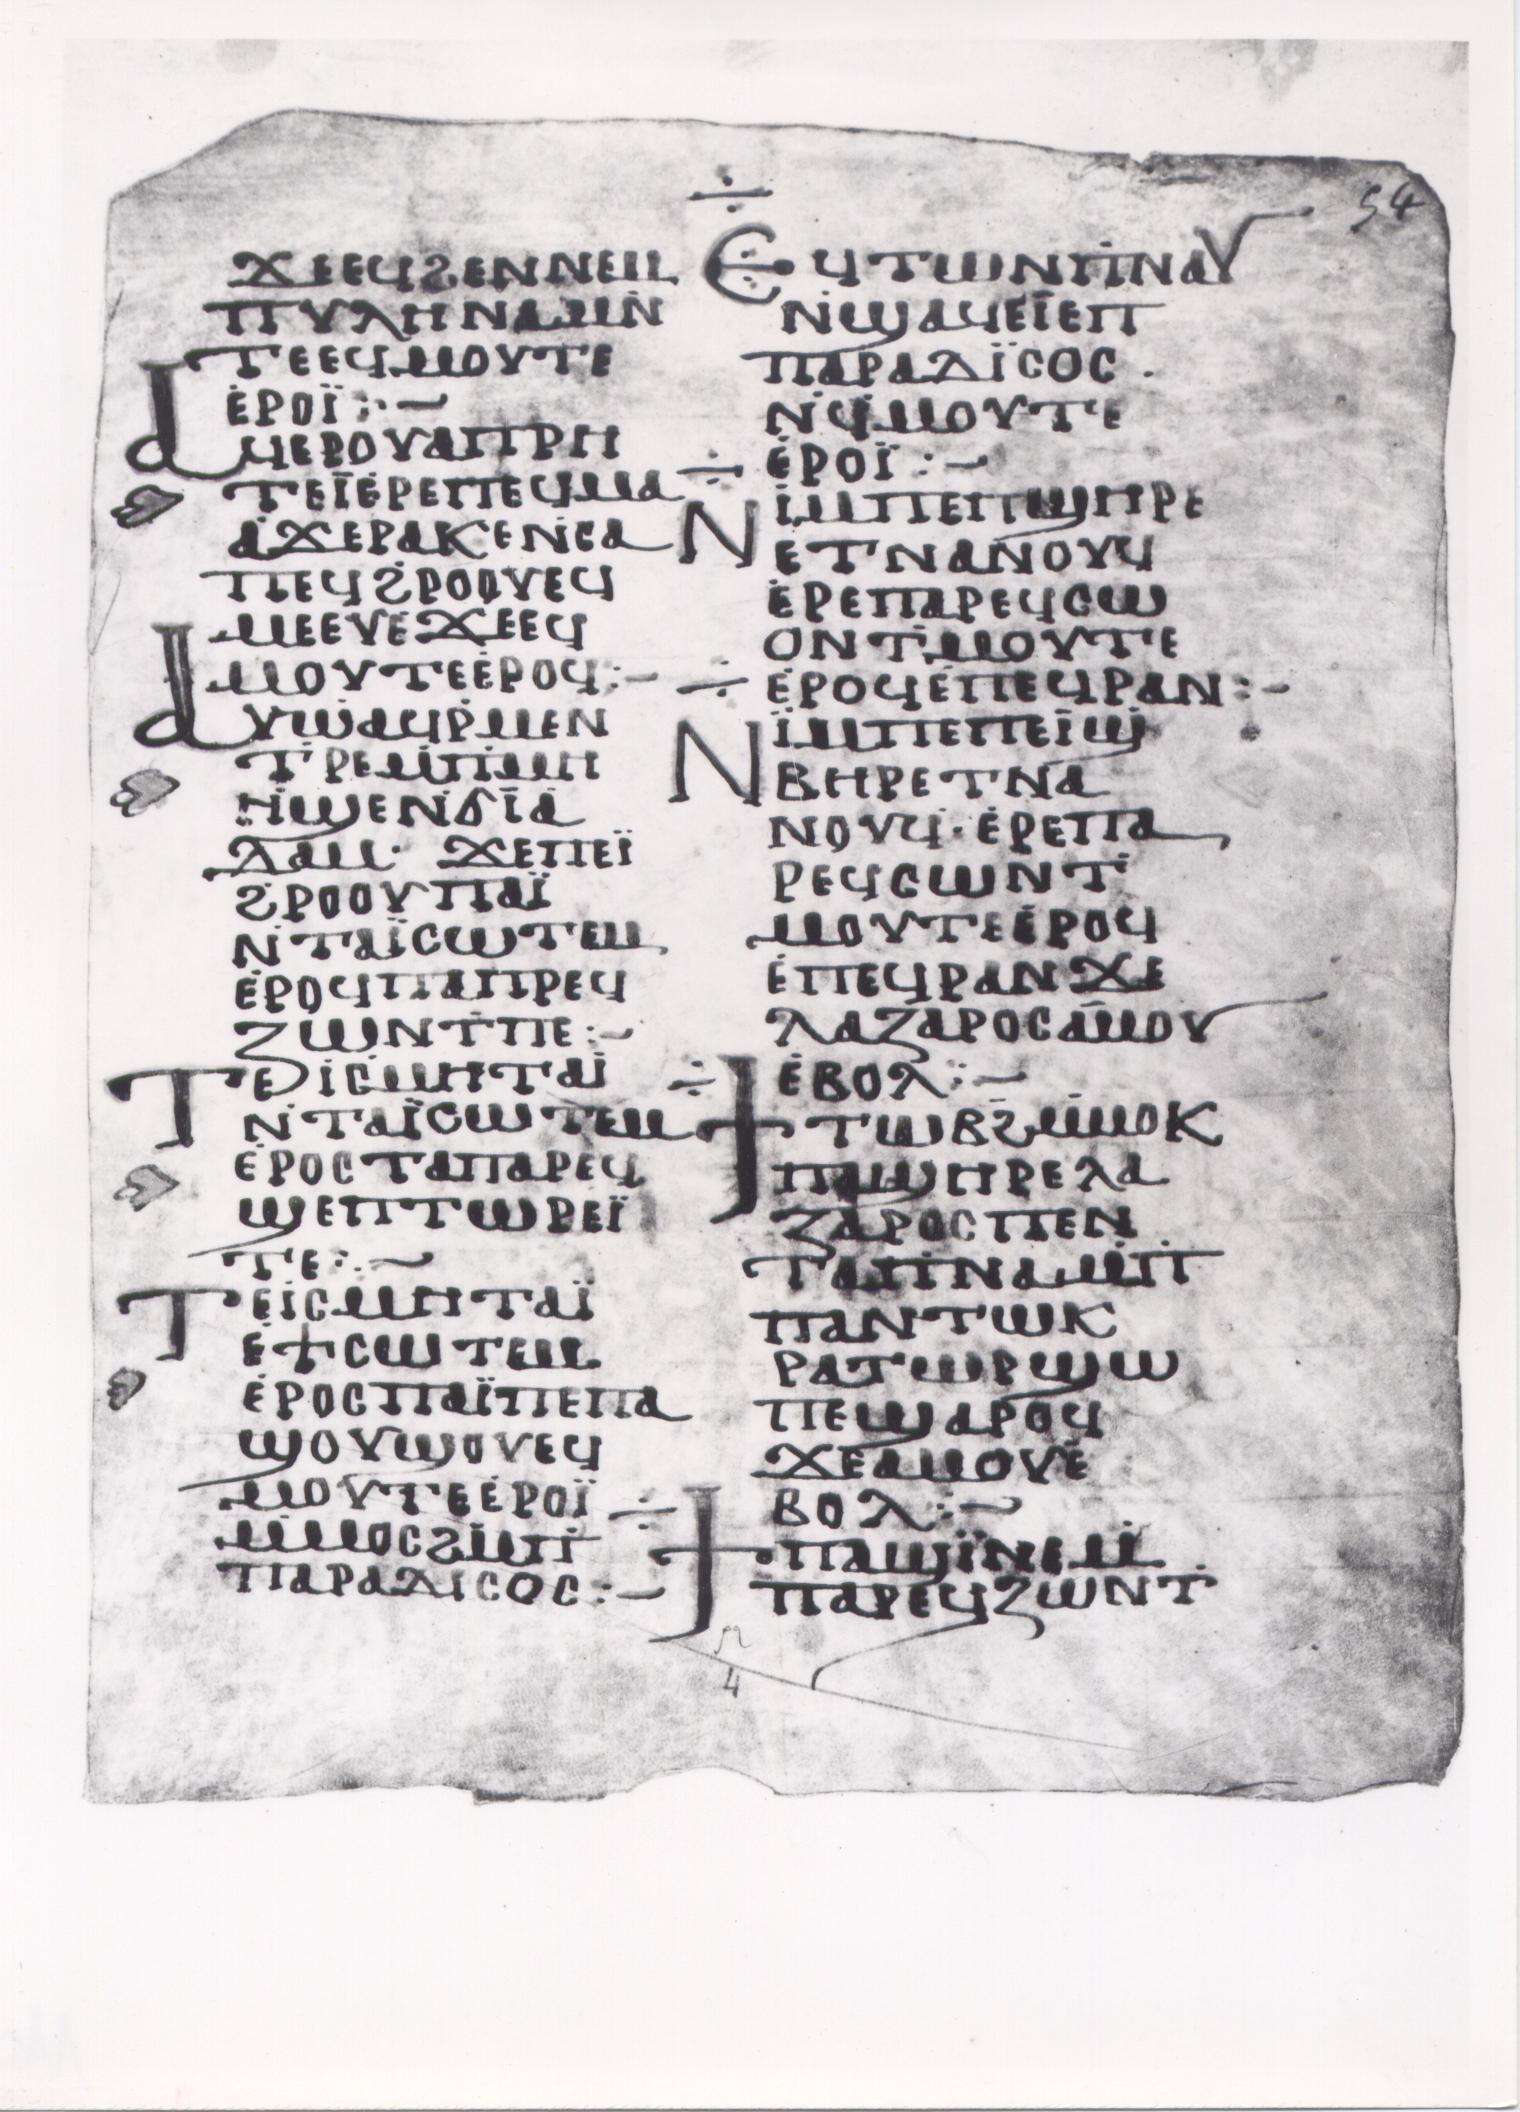 54
ϫⲉⲉϥϩⲉⲛⲛⲉⲙ
ⲡⲩⲗⲏⲛⲁⲙⲛ̇
ⲧⲉⲉϥⲙⲟⲩⲧⲉ
ⲉ̇ⲣⲟⲓ̈:~
ⲁϥⲉⲣⲟⲩⲁⲡⲣⲏ
ⲧⲉⲓ̈ⲉ̇ⲣⲉⲡⲉϥⲙⲁ
ⲁ̇ϫⲉⲣⲁⲕⲉⲛ̇ⲥⲁ
ⲡⲉϥϩⲣⲟⲟⲩⲉϥ
ⲙⲉⲉⲩⲉ̇ϫⲉⲉϥ
ⲙⲟⲩⲧⲉⲉ̇ⲣⲟϥ:~
ⲁⲩⲱⲁϥⲣ̇ⲙⲉⲛ
ⲧ̇ⲣⲉⲙ̇ⲡ̇ⲙⲏ
ⲏ̇ϣⲉⲛ̇ⲇⲓ̈ⲁ̇
ⲗⲁⲙ· ϫⲉⲡⲉⲓ̈
ϩⲣⲟⲟⲩⲡⲁⲓ̈
ⲛ̇ⲧⲁⲓ̈ⲥⲱⲧⲉⲙ
ⲉ̇ⲣⲟϥⲡⲁⲡⲣⲉϥ
ⲍⲱⲛⲧ̇ⲡⲉ:~
ⲧⲉⲓ̈ⲥⲙⲏⲧⲁⲓ̈
ⲛ̇ⲧⲁⲓ̈ⲥⲱⲧⲉⲙ
ⲉ̇ⲣⲟⲥⲧⲁⲡⲁⲣⲉϥ
ϣⲉⲡⲧⲱⲣⲉⲓ̈
ⲧⲉ:~
ⲧⲉⲓ̈ⲥⲙⲏⲧⲁⲓ̈
ⲉ̇ϯⲥⲱⲧⲉⲙ
ⲉ̇ⲣⲟⲥⲡⲁⲓ̈ⲡⲉⲡⲁ
ϣⲟⲩϣⲟⲩⲉϥ
ⲙⲟⲩⲧⲉⲉ̇ⲣⲟⲓ̈
ⲙ̇ⲙⲟⲥϩⲙ̇ⲡ̇
ⲡⲁⲣⲁⲇⲓⲥⲟⲥ:~
ⲉϥⲧⲱⲛⲡ̇ⲛⲁⲩ
ⲛ̇ϣⲁϥⲉⲓ̈ⲉⲡ
ⲡⲁⲣⲁⲇⲓ̈ⲥⲟⲥ.
ⲛ̇ϥ̇ⲙⲟⲩⲧⲉ
ⲉ̇ⲣⲟⲓ̈:~
ⲛⲓ̇ⲙⲡⲉⲡϣⲏⲣⲉ
ⲉⲧⲛⲁⲛⲟⲩϥ
ⲉ̇ⲣⲉⲡⲁⲣⲉϥⲥⲱ
ⲟⲛⲧ̇ⲙⲟⲩⲧⲉ
ⲉ̇ⲣⲟϥⲉ̇ⲡⲉϥⲣⲁⲛ:~
ⲛⲓ̈ⲙⲡⲉⲡⲉⲓ̈ϣ
ⲃⲏⲣⲉⲧⲛⲁ
ⲛⲟⲩϥ·ⲉ̇ⲣⲉⲡⲁ
ⲣⲉϥⲥⲱⲛⲧ̇
ⲙⲟⲩⲧⲉⲉ̇ⲣⲟϥ
ⲉ̇ⲡⲉϥⲣⲁⲛϫⲉ
ⲗⲁⲍⲁⲣⲟⲥⲁ̇ⲙⲟⲩ
ⲉ̇ⲃⲟⲗ:~
ϯⲧⲱⲃϩ̇ⲙ̇ⲙⲟⲕ
ⲡⲁϣⲏⲣⲉⲗⲁ
ⲍⲁⲣⲟⲥⲡⲉⲛ
ⲧⲁⲡ̇ⲛⲁⲙ̇ⲡ̇
ⲡⲁⲛⲧⲱⲕ
ⲣⲁⲧⲱⲣϣⲱ
ⲡⲉϣⲁⲣⲟϥ
ϫⲉⲁⲙⲟⲩⲉ̇
ⲃⲟⲗ:~
ϯⲡⲁϣⲓ̈ⲛⲉⲙ̇
ⲡⲁⲣⲉϥⲍⲱⲛⲧ̇
4